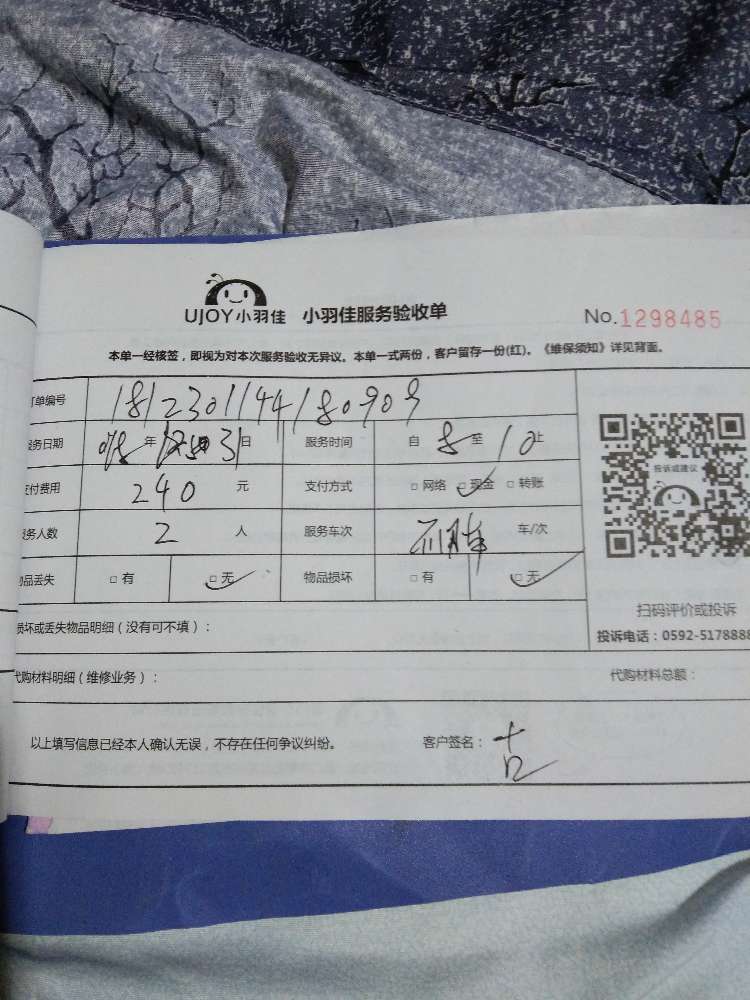 UJOY小羽佳 小羽佳服务验收单 No.1298485
本单一经核签，即视为对本次服务验收无异议。本单一式两份，客户留存一份(红)。《维保须知》详见背面。
订单编号 181230114180909
服务日期 018年12月31日 服务时间 自8至10止
支付费用 240元 支付方式 □网络 □现金 □转账
服务人数 2人 服务车次 车/次
投诉或建议
物品丢失 □有 □无 物品损坏 □有 □无
扫码评价或投诉
损坏或丢失物品明细（没有可不填）：
投诉电话：0592-5178888
代购材料明细（维修业务）： 代购材料总额：
以上填写信息已经本人确认无误，不存在任何争议纠纷。 客户签名：